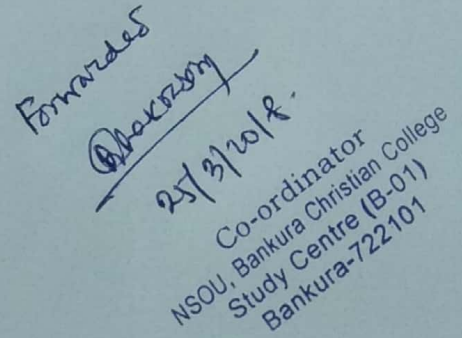 Forwarded
25/3/2018.
Co-ordinator
NSOU, Bankura Christian College
Study Centre (B-01)
Bankura-722101